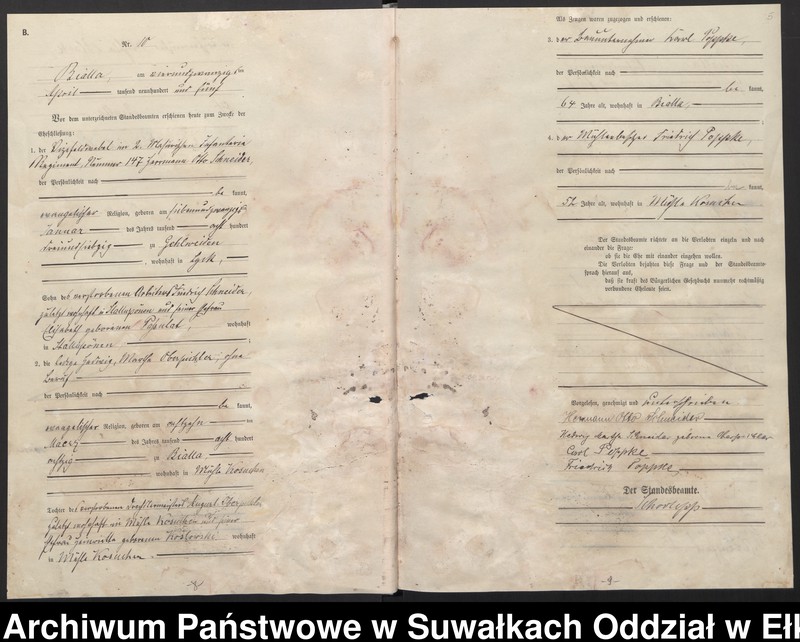 B.
Nr. 10
Bialla, am vierundzwanzigsten
April tausend neunhundert und fünf
Vor dem unterzeichneten Standesbeamten erschienen heute zum Zwecke der
Eheschließung:
1. der Vizefeldwebel im 2. Masurischen Infanterie
Regiment, Nummer 147 Herrmann Otto Schneider,
der Persönlichkeit nach
be kannt,
evangelischer Religion, geboren am siebenundzwanzigsten
Januar des Jahres tausend acht hundert
dreiundsiebzig zu Gehlweiden
, wohnhaft in Lyck,
Sohn des verstorbenen Arbeiters Friedrich Schneider,
zuletzt wohnhaft in Stallupönen und seiner Ehefrau
Elisabeth geborenen wohnhaft
in Stallupönen
2. die ledige Hedwig, Martha Oberpichler, ohne
Beruf
der Persönlichkeit nach
be kannt,
evangelischer Religion, geboren am achtzehnten
März des Jahres tausend acht hundert
achtzig zu Bialla
, wohnhaft in Mühle
Tochter des verstorbenen August Oberpichler
zuletzt wohnhaft in Mühle und seiner
Ehefrau Henriette geborenen Koslowski wohnhaft
in Mühle
-8-
Als Zeugen waren zugezogen und erschienen:
3. der Bauunternehmer Karl Poppke,
der Persönlichkeit nach
be kannt,
64 Jahre alt, wohnhaft in Bialla,
4. der Mühlenbesitzer Friedrich Poppke,
der Persönlichkeit nach
be kannt,
52 Jahre alt, wohnhaft in Mühle
Der Standesbeamte richtete an die Verlobten einzeln und nach
einander die Frage:
ob sie die Ehe mit einander eingehen wollen.
Die Verlobten bejahten diese Frage und der Standesbeamte
sprach hierauf aus,
daß sie kraft des Bürgerlichen Gesetzbuchs nunmehr rechtmäßig
verbundene Eheleute seien.
Vorgelesen, genehmigt und unterschrieben
Hermann Otto Schneider
Hedwig Martha Schneider geborene Oberpichler
Carl Poppke
Friedrich Poppke
Der Standesbeamte.
-9-
Archiwum Państwowe w Suwałkach Oddział w Eł